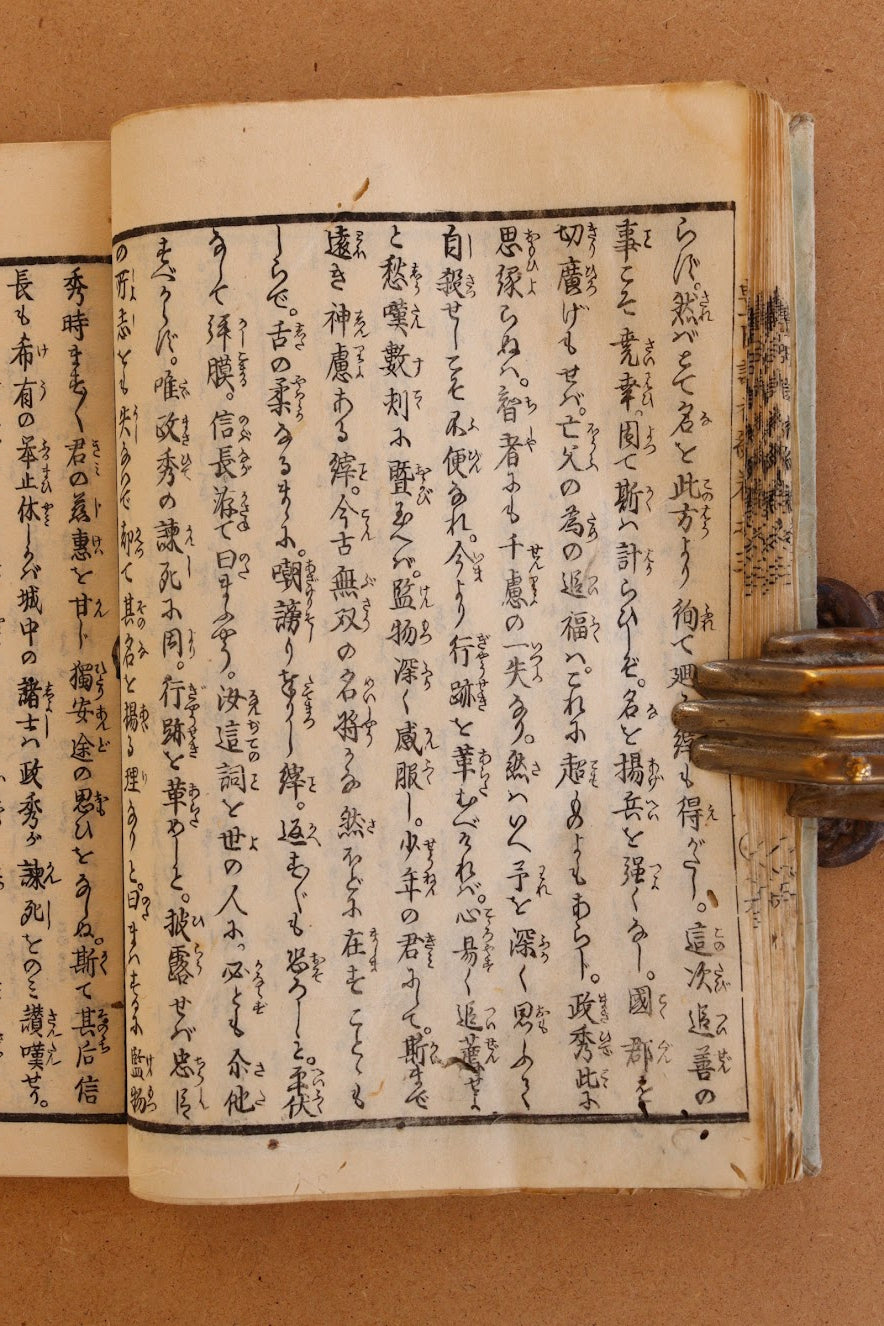 らず。然ばとて名を此方より徇て廻る縡も得がたし。這次追善の
事こそ尭幸。因て斯は計らひしぞ。名を揚兵を强くなし。國郡を
切廣げもせば。亡父の為の追福は。これに超るものよもあらじ。政秀此に
思縁らぬは。智者にも千慮の一失なり。然はいへ予を深く思ふて
自殺せしこそ不便なれ。今より行跡を革むべければ。心易く追薦せよ
と愁嘆數刻に曁び玉へば。監物深く感服し。少年の君にして。斯まで
遠き神慮ある縡。今古無双の名將かな然ほどに在すことゝも
しらで。舌の柔なるまゝに。嘲謗りをりし縡。返すも恐ろしと。平伏
なして拜膜。信長渧て曰まふやう。汝這詞を世の人に。必とも佘他
すべからず。唯政秀の諫死に因。行跡を革めしと。披露せば忠臣
の所志をも失なはで却て其名を揚る理なりと。曰まはするに監物
秀時まく君の慈惠を甘じ獨安途の思ひをなしぬ。斯て其后信
長も希有の举止休しかば城中の諸士は政秀が諫死をのミ讃嘆せり。